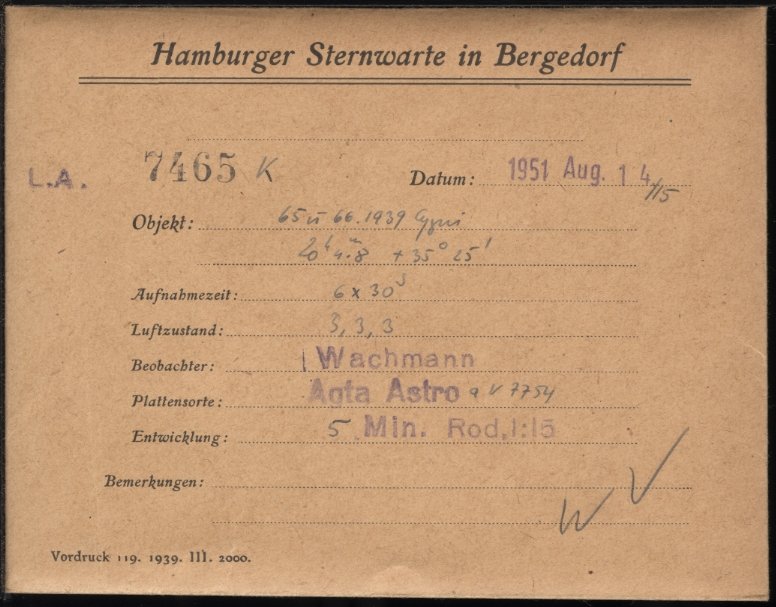 Hamburger Sternwarte in Bergedorf
L.A. 7465 K Datum: 1951 Aug. 14/15
Objekt: 65 u 66.1939 Cygni
20h 4m.8 +35° 25'
Aufnahmezeit: 6 x 30s
Luftzustand: 3, 3, 3
Beobachter: Wachmann
Plattensorte: Agfa Astro 7754
Entwicklung: 5 Min. Rod.1:15
Bemerkungen:
W V
Vordruck 119. 1939. III. 2000.